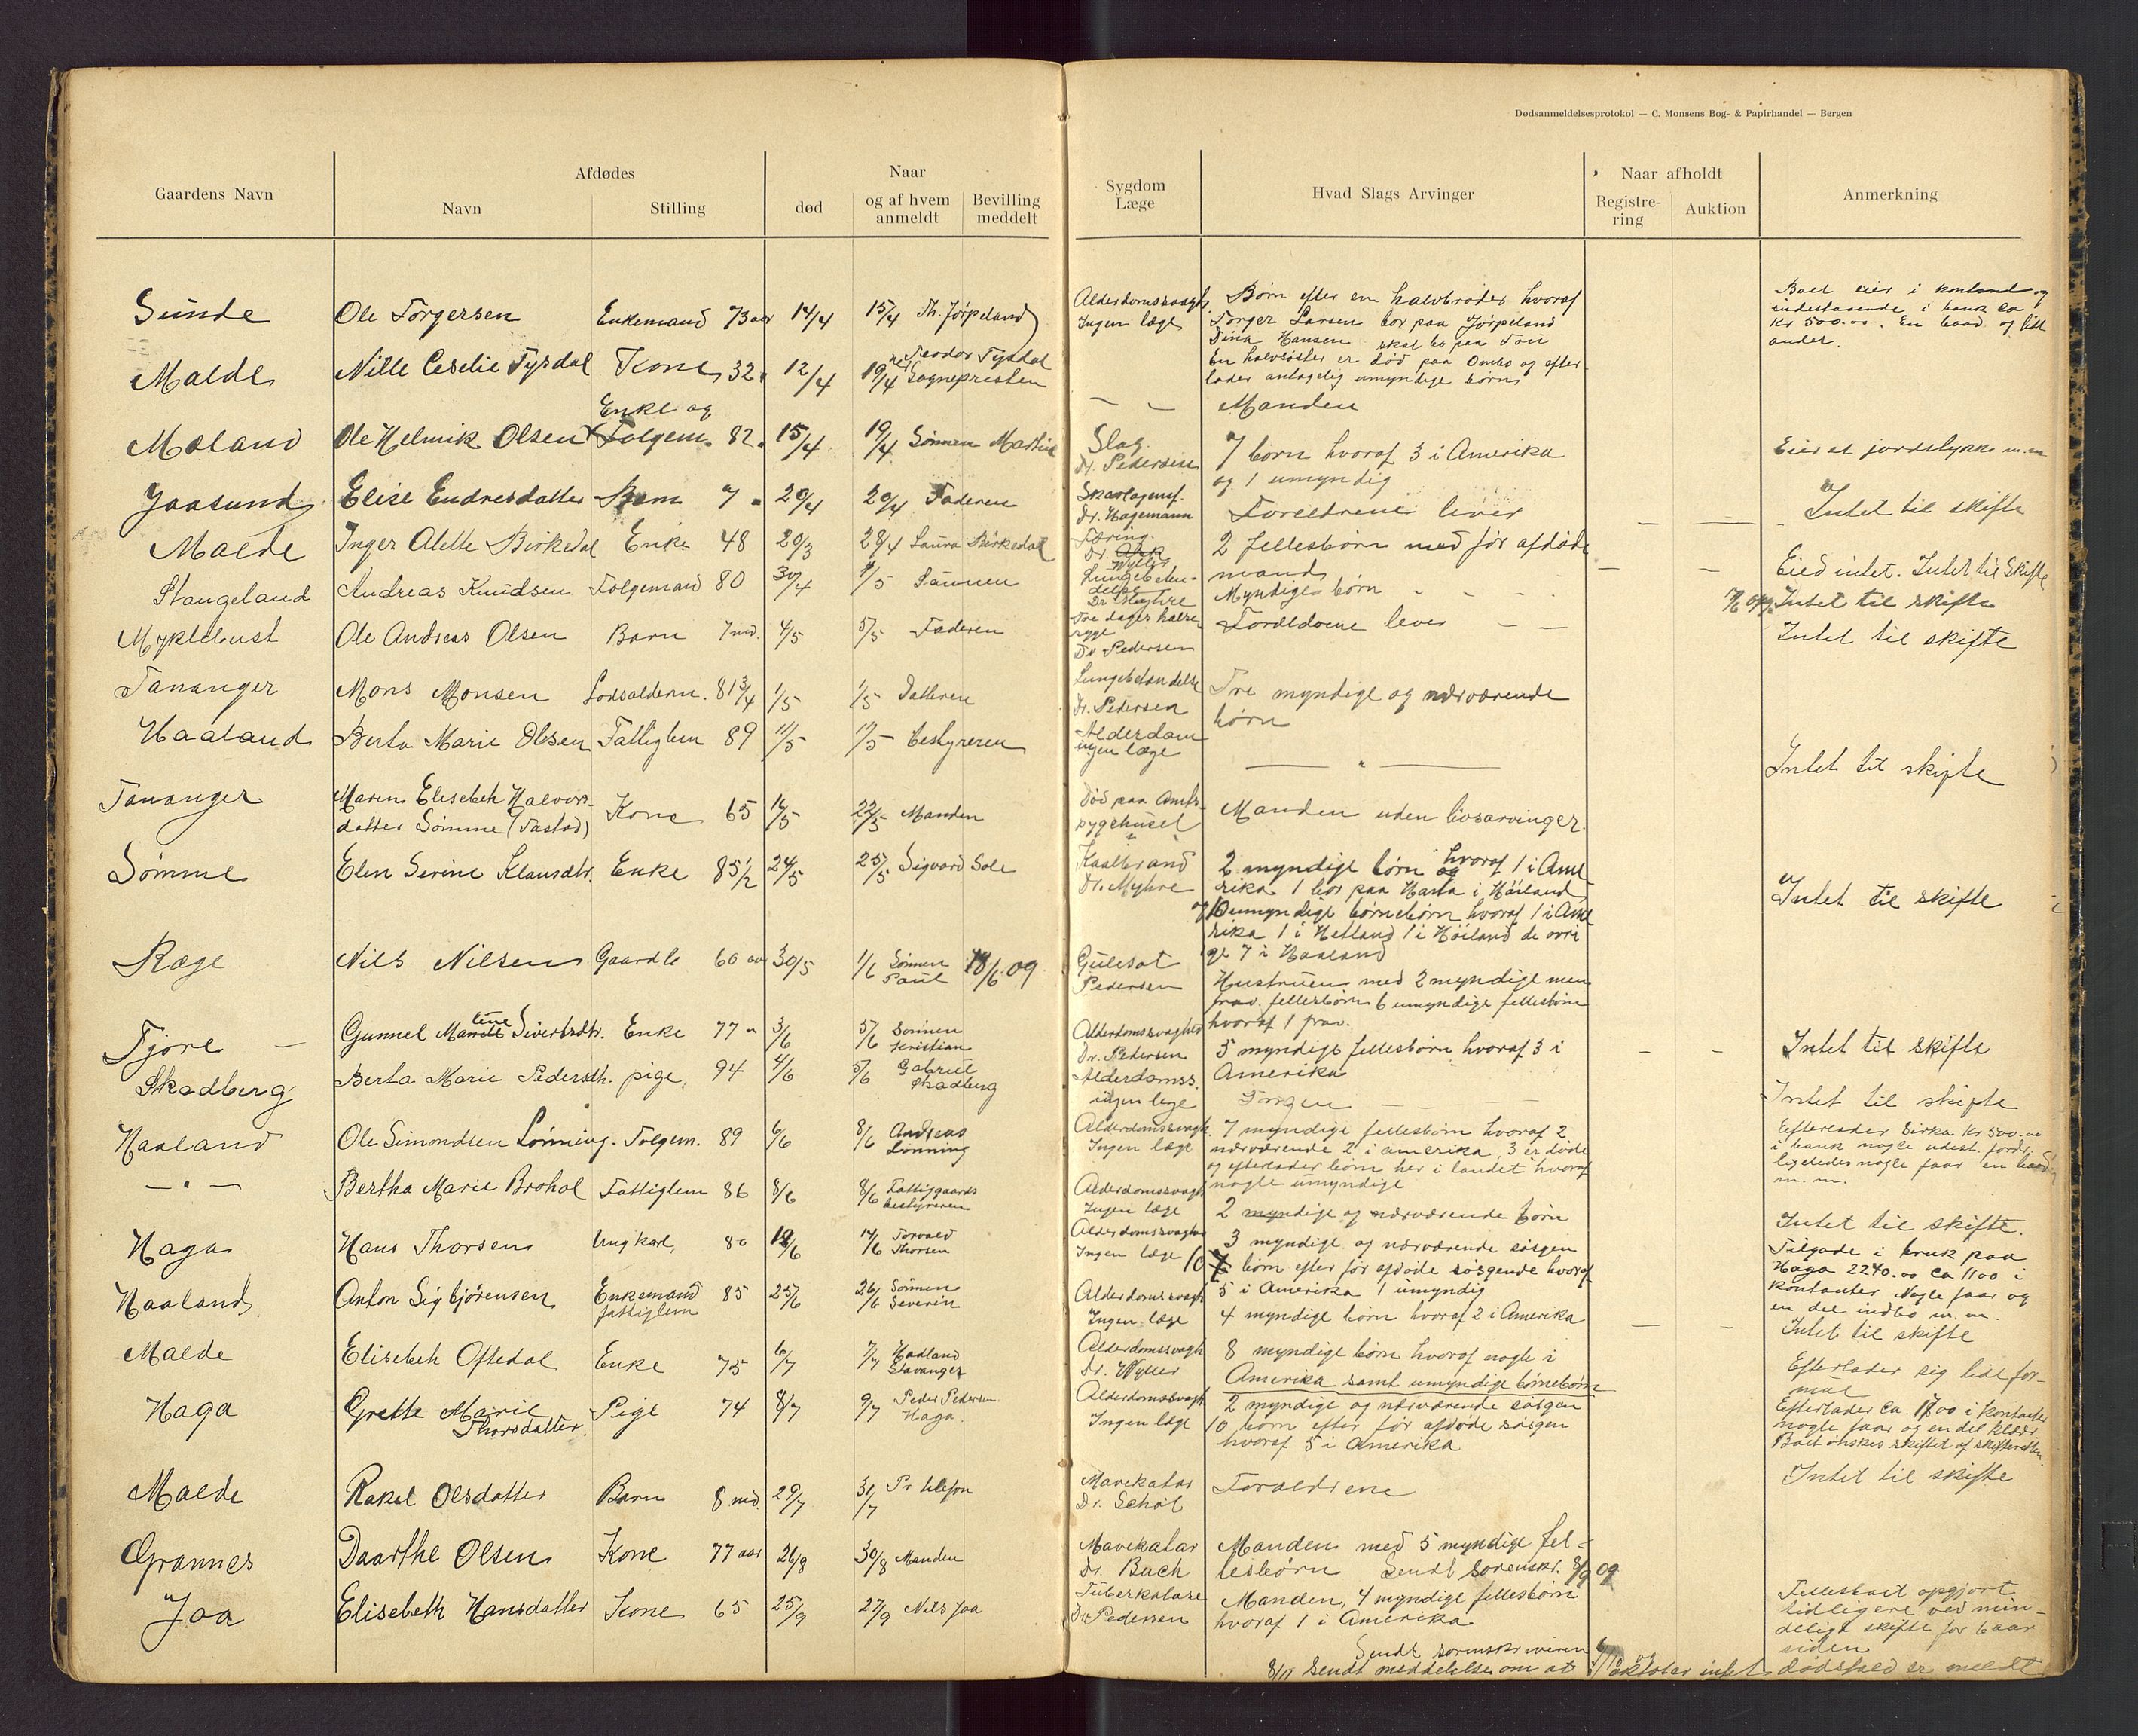 Dødsanmeldelsesprotokol — C. Monsens Bog- & Papirhandel — Bergen
Gaardens Navn
Afdødes
Navn
Stilling
Naar
død
og af hvem anmeldt
Bevilling meddelt
Sygdom Læge
Hvad Slags Arvinger
Naar afholdt
Registre-ring
Auktion
Anmerkning
Sunde Ole Torgersen Enkemand 73 aar 14/4 15/4 Th. Jørpeland
Alderdomssvagh. Ingen læge
Børn efter en halvbroder hvoraf
Torger Larsen bor paa Jørpeland
Dina Hansen skal bo paa
En halvsøster er død paa Ombo og efter-
lader antagelig umyndige børn
Boet eier i kontant og
indestaaende i bank ca
Kr 500.00. En baad og lidt
andet.
Malde Nille Cecelie Tysdal Kone 32 12/4 19/4 Teodor Tysdal Sognepresten
— — Manden
Moland Ole Helmik Olsen Enke og Folgem. 82 15/4 19/4 Sønnen Martin
Slag. Dr. Pedersen
7 born hvoraf 3 i Amerika
og 1 umyndig
Eier et jordstykke m.m
Jaasund Elise Endresdatter Barn 7 " 20/4 20/4 Faderen
Skarlagensf. Dr. Hagemann
Foreldrene lever
Intet til skifte
Malde Inger Alette Birkedal Enke 48 20/3 28/4 Laura Birkedal
Tæring. Dr. Wyller
2 fellesbørn med før afdøde
mand
Eied intet. Intet til Skifte
Stangeland Andreas Knudsen Folgemand 80 30/4 1/5 Sønnen
Lungebeten-delse Dr Myhre
Myndige børn
Intet til skifte
Myklebust Ole Andreas Olsen Barn 7 md. 4/5 5/5 Faderen
Tre dages halssyge Dr Pedersen
Foreldrene lever — —
Intet til skifte
Tananger Mons Monsen Lodsalderm. 81 3/4 1/5 1/5 Datteren
Lungebetændelse Dr. Pedersen
Tre myndige og nærværende
børn
Haaland Berta Marie Olsen Fattiglem 89 11/5 11/5 bestyreren
Alderdom ingen læge
— " —
Intet til skifte
Tananger Maren Elisebeh Halvors-
datter Sømme (Tastad) Kone 65 14/5 22/5 Manden
Død paa Amts-sygehuset
Manden uden livsarvinger.
Sømme Elen Serine Klausdtr. Enke 85 1/2 24/5 25/5 Sigvard Sole
Koldbrand Dr. Myhre
2 myndige børn hvoraf 1 i Ame
rika 1 bor paa Harta i Høiland
og 10 umyndige børnebørn hvoraf 1 i Ame
rika 1 i Hetland 1 i Høiland de øvri
ge 7 i Haaland
Intet til skifte
Ræge Nils Nilsen Gaardb 60 aar 30/5 1/6 Sønnen Paul 18/6 09
Gulesot Pedersen
Hustruen med 2 myndige men
frav. fellesbørn 6 umyndige fellesbørn
hvoraf 1 frav.
Tjore — Gunnel Malene Sivertsdtr. Enke 77 " 3/6 5/6 Sønnen Kristian
Alderdomssvaghed Dr. Pedersen
5 myndige fellesbørn hvoraf 3 i
Amerika
Intet til skifte
Skadberg Berta Marie Pedersdtr. pige 94 4/6 5/6 Gabriel Skadberg
Alderdomss. ingen lege
Ingen — —
Intet til skifte
Haaland Ole Simondsen Lønning. Folgem. 89 6/6 8/6 Andreas Lønning
Alderdomssvagh. Ingen læge
7 myndige fellesbørn hvoraf 2
nærværende 2 i amerika, 3 er døde
og efterlader børn her i landet hvoraf
nogle umyndige
Efterlader Sirka Kr 500.00
i bank nogle udest. fordr.
ligeledes nogle faar en baad
m. m.
— " — Bertha Marie Brohol Fattiglem 86 8/6 8/6 Fattiggaards bestyreren
Alderdomssvagh Ingen læge
2 myndige og nærværende børn
Intet til skifte.
Haga Hans Thorsen Ungkarl 80 12/6 14/6 Torvald Thorsen
Alderdomssvaghed Ingen læge
3 myndige og nærværende søsgen
10 børn efter før afdøde søsgende hvoraf
5 i Amerika 1 umyndig
Tilgode i bruk paa
Haga 2240.00 ca 1100 i
kontanter Nogle faar og
en del indbo m.m.
Haaland Anton Sigbjørensen Enkemand fattiglem 85 25/6 26/6 Sønnen Severin
Alderdomssvagh Ingen læge
4 myndige børn hvoraf 2 i Amerika
Intet til skifte
Malde Elisebeh Oftedal Enke 75 6/7 7/7 Hadland Stavanger
Alderdomssvagh Dr. Wyller
8 myndige børn hvoraf nogle i
Amerika samt umyndige børnebørn
Efterlader sig lidt for-
mue
Haga Grette Marie Thorsdatter. Pige 74 8/7 9/7 Peder Pedersen Haga.
Alderdomssvagh Ingen læge
2 myndige og nærværende søsgen
10 børn efter før afdøde søsgen
hvoraf 5 i Amerika
Efterlader ca. 1700 i kontanter
nogle faar og en del klæder
Boet ønskes skiftet af skifteretten.
Malde Rakel Olsdatter Barn 8 md. 29/7 31/7 Pr telefon
Mavekatar Dr. Schøl
Foreldrene
Intet til skifte
Grannes Daarthe Olsen Kone 77 aar 26/8 30/8 Manden
Mavekatar Dr. Bach
Manden med 5 myndige fel-
lesbørn Sendt Sorenskr. 8/9 09
Jaa Elisebeth Hansdatter Kone 65 25/9 27/9 Nils Jaa
Tuberkulose Dr Pedersen
Manden, 4 myndige fellesbørn
hvoraf 1 i Amerika
Fellesboet opgjort
tidligere ved min-
delige skifte for 6 aar
siden
Sendt sorenskriveren
8/11 Sendt meddelelse om at i oktober intet dødsfald er meldt